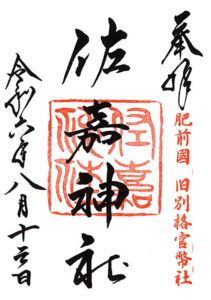 奉拝
肥前國 旧別格官幣社
佐嘉神社
令和六年八月十三日